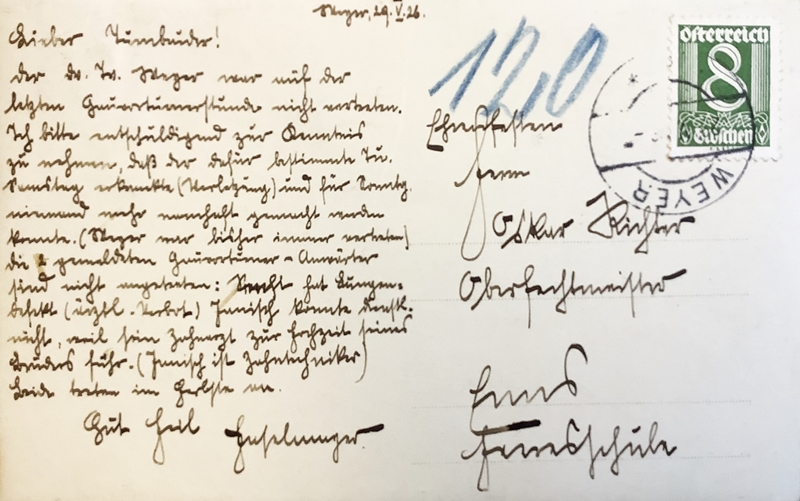 Weyer, 29. V. 26.
Lieber Turnbruder!
Der dt. Tv. Weyer war auf der
letzten Gauvorturnerstunde nicht vertreten.
Ich bitte entschuldigend zur Kenntnis
zu nehmen, daß der dafür bestimmte Tu.
Samstag erkrankte (Verletzung) und für Sonntg.
niemand mehr namhaft gemacht werden
konnte. (Weyer war bisher immer vertreten)
Die 2 gemeldeten Gauvorturner-Anwärter
sind nicht angetreten: hat Lungen-
defekt (ärztl. Verbot) Janisch konnte dienstl.
nicht, weil sein Zahnarzt zur Hochzeit seines
Bruders fuhr. (Janisch ist Zahntechniker)
Beide treten im Herbste an.
Gut Heil
120
Ehrenfesten
Herrn
Oskar Richter
Oberfechtmeister
Enns
Heeresschule
Österreich
8
Groschen
WEYER